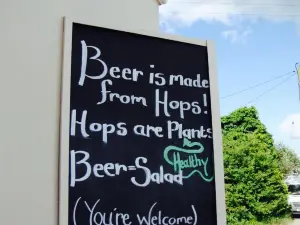 Beer is made
from Hops!
Hops are Plants
Beer=Salad
Healthy
(You're Welcome)